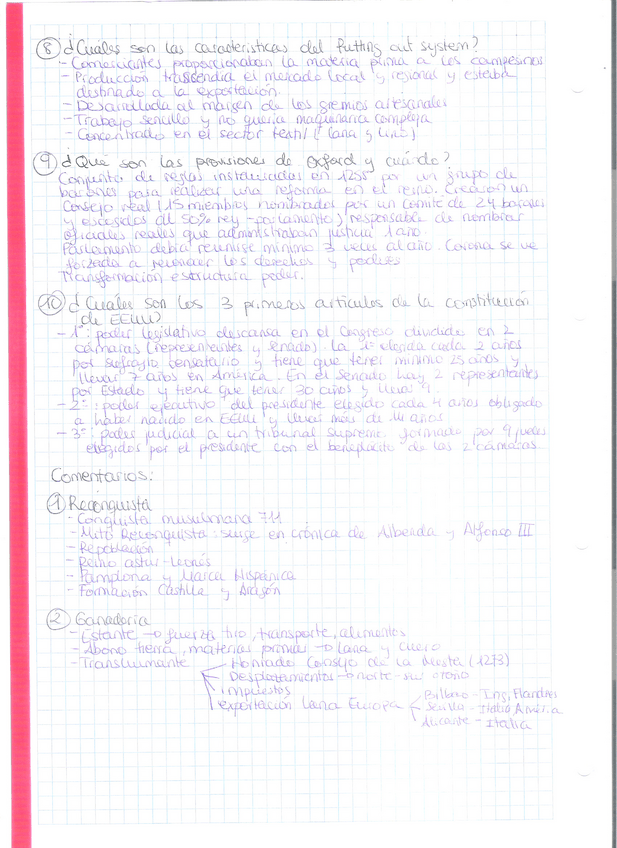 ⑧ ¿Cuáles son las características del Putting out system?
- Comerciantes proporcionaban la materia prima a los campesinos
- Producción trascendía el mercado local y regional y estaba
destinado a la exportación.
- Desarrollada al margen de los gremios artesanales
- Trabajo sencillo y no quería maquinaria compleja
- Concentrado en el sector textil (lana y lino)
⑨ ¿Qué son las provisiones de Oxford y cuándo?
Conjunto de reglas instauradas en 1258 por un grupo de
barones para realizar una reforma en el reino. Crearon un
Consejo real (15 miembros nombrados por un comité de 24 barones
y escogidos al 50% rey - parlamento) responsable de nombrar
oficiales reales que administraban justicia 1 año.
Parlamento debía reunirse mínimo 3 veces al año. Corona se ve
forzada a reconocer los derechos y poderes
Transformación estructura poder.
⑩ ¿Cuáles son los 3 primeros artículos de la constitución
de EEUU?
- 1º: poder legislativo descansa en el Congreso dividido en 2
cámaras (representantes y senado). La 1ª elegida cada 2 años
por sufragio censatario y tiene que tener mínimo 25 años y
llevar 7 años en América. En el senado hay 2 representantes
por Estado y tiene que tener 30 años y llevar 9.
- 2º: poder ejecutivo del presidente elegido cada 4 años obligado
a haber nacido en EEUU y llevar más de 14 años
- 3º: poder judicial a un tribunal supremo formado por 9 jueces
elegidos por el presidente con el beneplácito de las 2 cámaras
Comentarios:
① Reconquista
- Conquista musulmana 711
- Mito Reconquista: surge en crónica de Albelda y Alfonso III
- Repoblación
- Reino astur-leonés
- Pamplona y Marca Hispánica
- Formación Castilla y Aragón
② Ganadería
- Estante → fuerza tiro, transporte, alimentos
- Abono tierra, materias primas → lana y cuero
- Transhumante Honrado Consejo de la Mesta (1273)
Desplazamientos → norte-sur otoño
impuestos
exportación lana Europa
Bilbao - Ing, Flandres
Sevilla - Italia América
Alicante - Italia